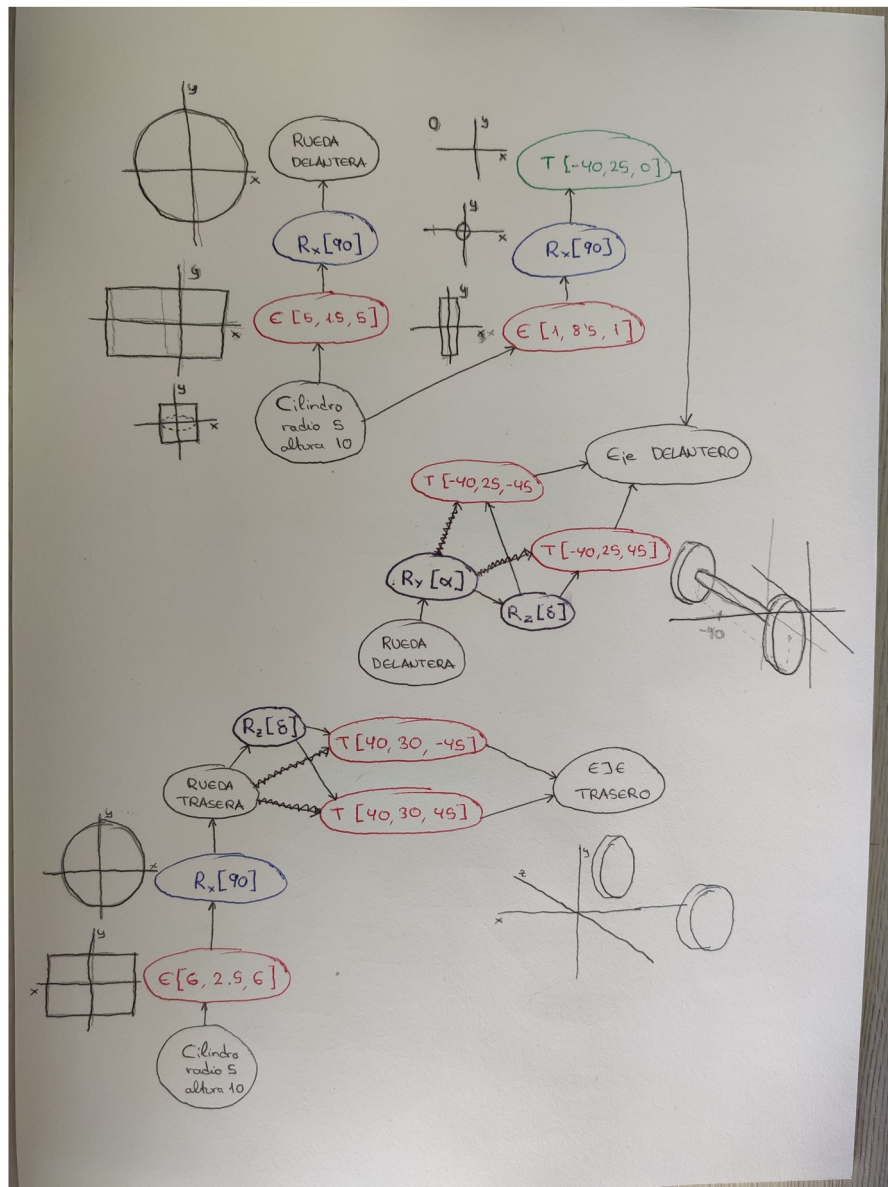 y
x
RUEDA
DELANTERA
Rx[90]
y
x
E [5, 1.5, 5]
y
x
Cilindro
radio 5
altura 10
O
y
x
T [-40, 25, 0]
y
x
Rx[90]
y
x
E [1, 8'5, 1]
Eje DELANTERO
T [-40, 25, -45
T [-40, 25, 45]
Ry [α]
Rz[δ]
RUEDA
DELANTERA
-40
Rz[δ]
T [40, 30, -45]
RUEDA
TRASERA
T [40, 30, 45]
EJE
TRASERO
y
x
Rx[90]
y
z
x
y
x
E[6, 2.5, 6]
Cilindro
radio 5
altura 10